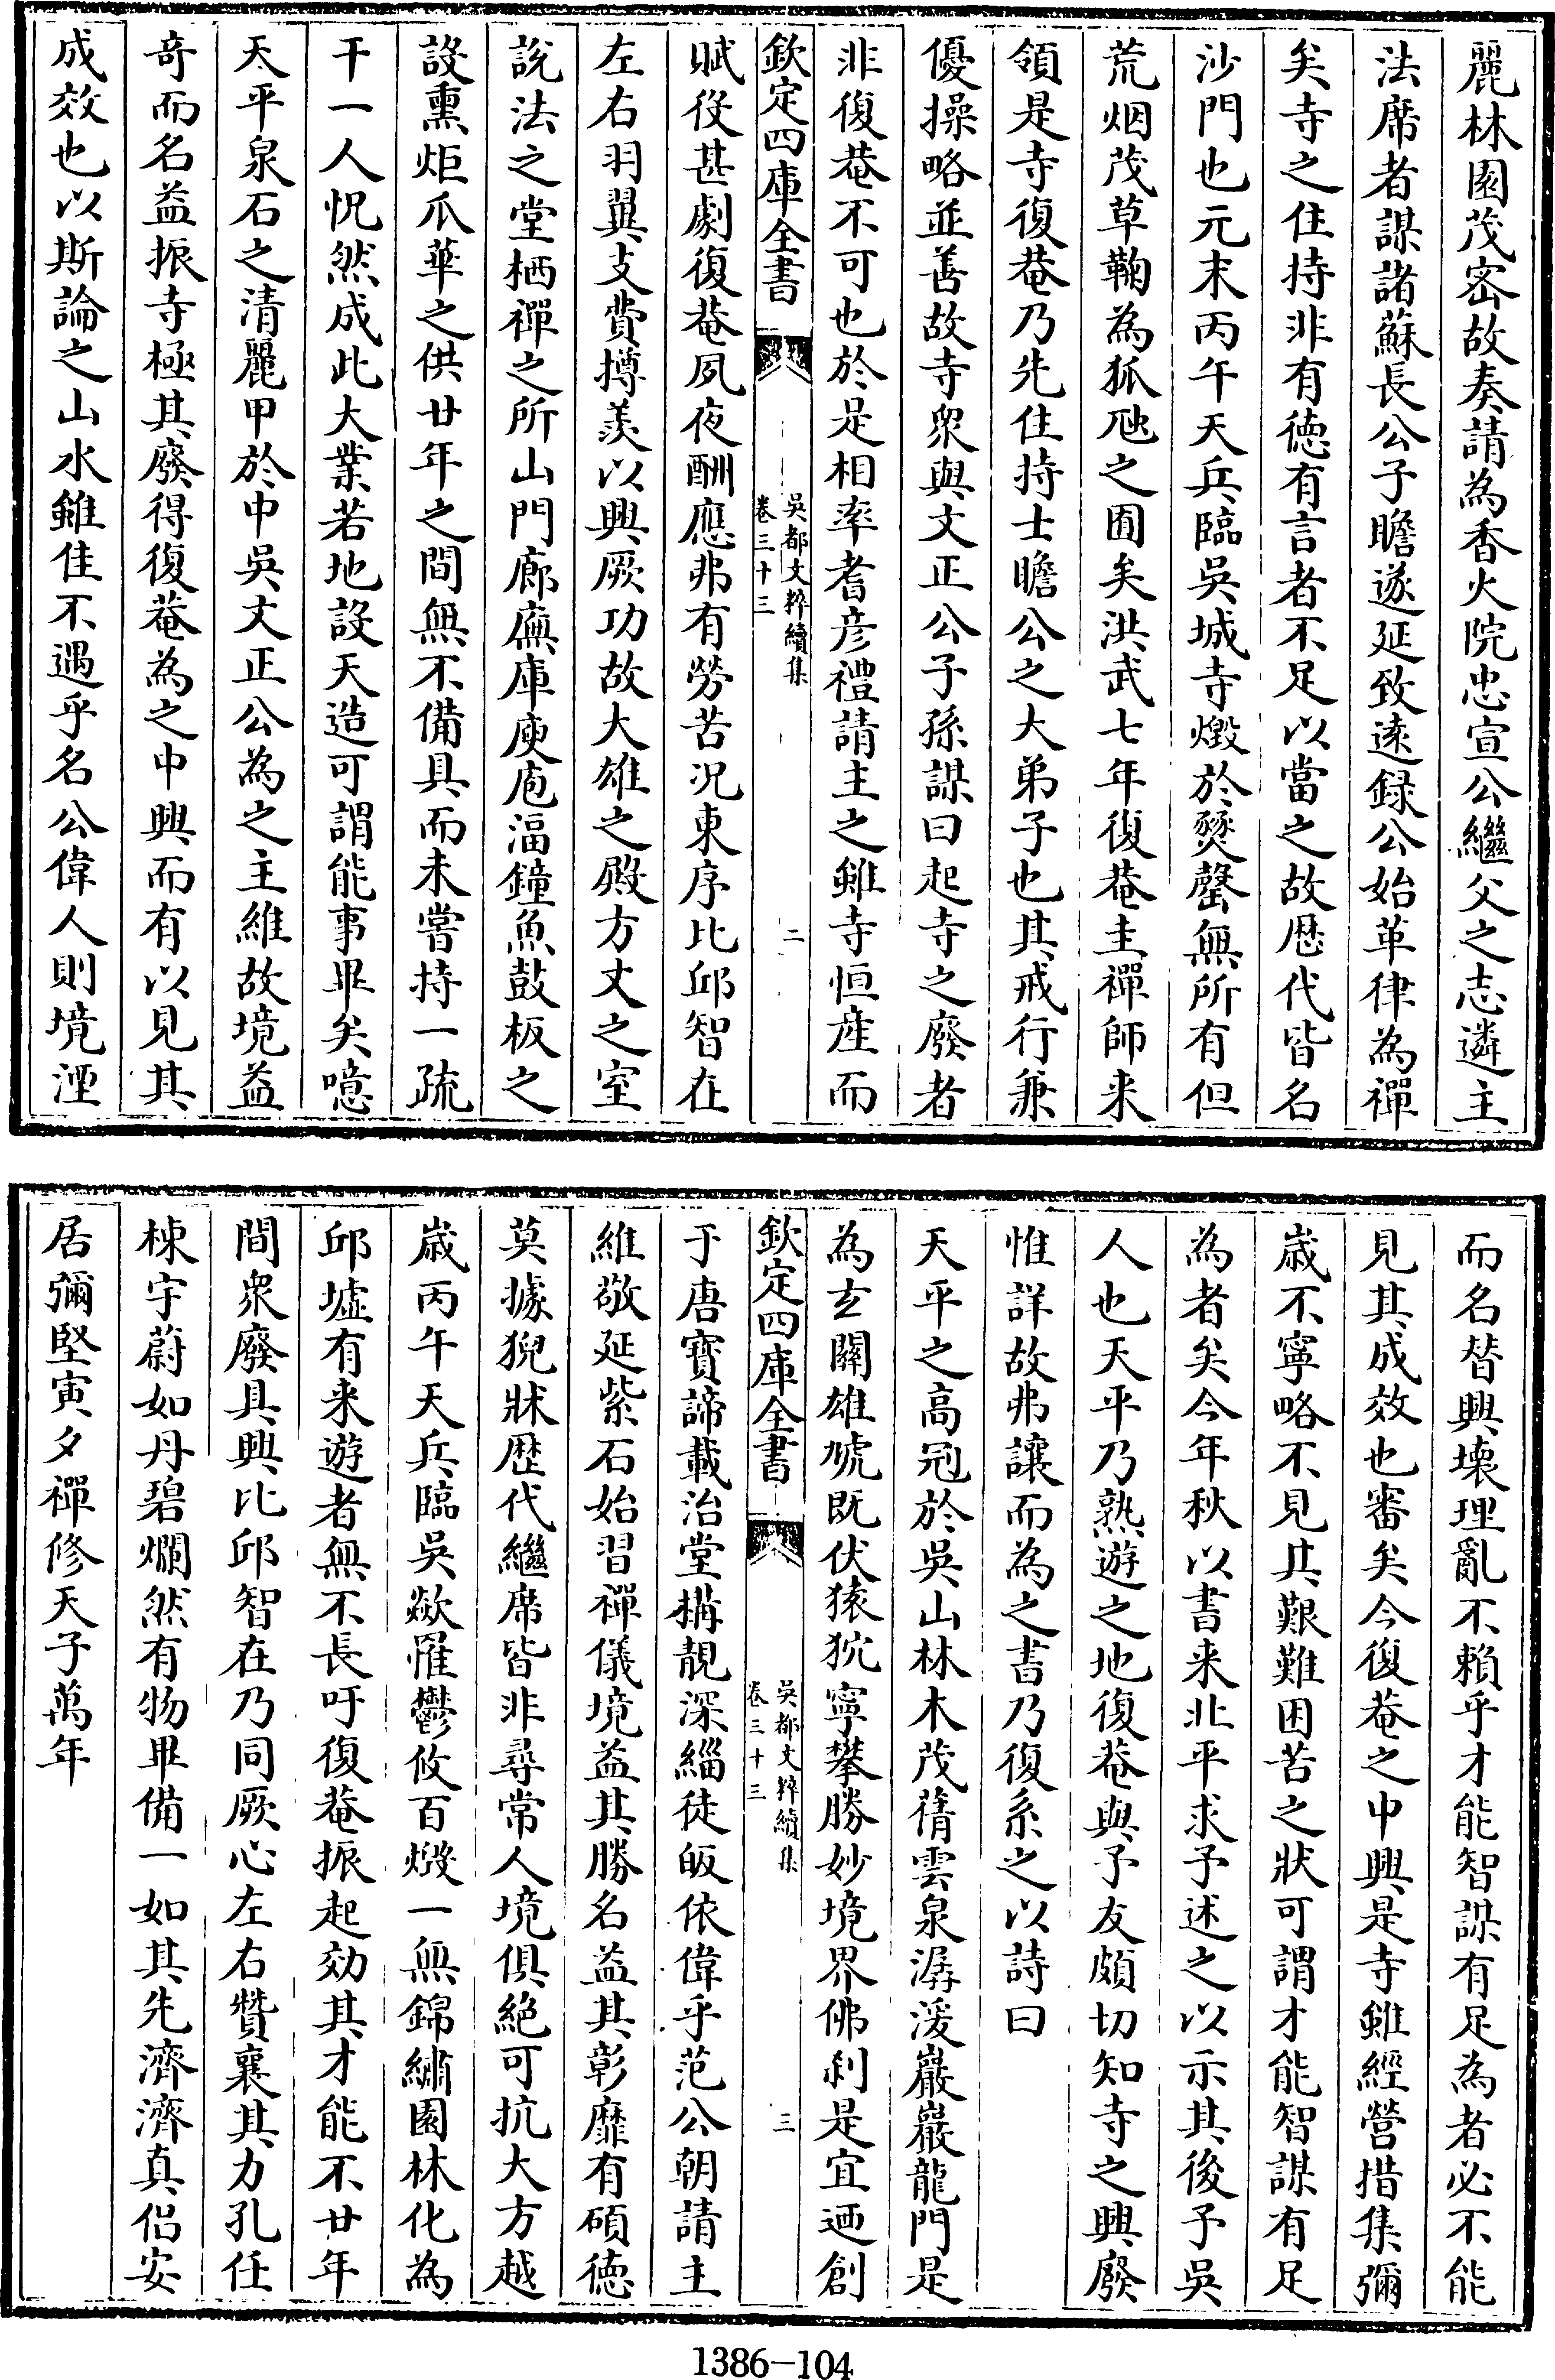 麗林園茂宻故奏請為香火院忠宣公繼父之志遴主
法席者謀諸蘇長公子瞻遂延致逺録公始革律為禪
矣寺之住持非有徳有言者不足以當之故歴代皆名
沙門也元末丙午天兵臨吳城寺燬於燹罄無所有但
荒烟茂草鞠為狐虺之囿矣洪武七年復菴圭禪師来
領是寺復菴乃先住持士瞻公之大弟子也其戒行兼
優操略並善故寺衆與文正公子孫謀曰起寺之廢者
非復菴不可也於是相率耆彦禮請主之雖寺恒産而
欽定四庫全書
吳都文粹續集
卷三十三
二
賦役甚劇復菴夙夜酬應弗有勞苦况東序比邱智在
左右羽翼支費撙羡以興厥功故大雄之殿方丈之室
說法之堂栖禪之所山門廊廡庫庾庖湢鐘魚鼓板之
設熏炬爪華之供廿年之間無不備具而未嘗持一疏
干一人怳然成此大業若地設天造可謂能事畢矣噫
天平泉石之清麗甲於中吳文正公為之主維故境益
奇而名益振寺極其廢得復菴為之中興而有以見其
成效也以斯論之山水雖佳不遇乎名公偉人則境湮
而名替興壊理亂不頼乎才能智謀有足為者必不能
見其成效也審矣今復菴之中興是寺雖經營措集彌
歳不寧略不見其艱難困苦之狀可謂才能智謀有足
為者矣今年秋以書来北平求予述之以示其後予吳
人也天平乃熟遊之地復菴與予友頗切知寺之興廢
惟詳故弗讓而為之書乃復系之以詩曰
天平之高冠於吳山林木茂蒨雲泉潺湲巖巖龍門是
為玄關雄虓既伏猿狖寧攀勝妙境界佛刹是宜迺創
欽定四庫全書
吳都文粹續集
卷三十三
三
于唐寳諦載治堂搆靚深緇徒皈依偉乎范公朝請主
維敬延紫石始習禪儀境益其勝名益其彰靡有碩徳
莫據猊牀歴代繼席皆非尋常人境俱絶可抗大方越
歳丙午天兵臨吳歘罹鬱攸百燬一無錦繡園林化為
邱墟有来遊者無不長吁復菴振起効其才能不廿年
間衆廢具興比邱智在乃同厥心左右贊襄其力孔任
棟宇蔚如丹碧爛然有物畢備一如其先濟濟真侣安
居彌堅寅夕禪修天子萬年
1386-104